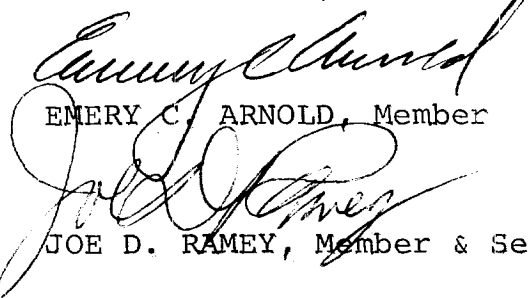 Emery C Arnold
EMERY C. ARNOLD, Member
Joe D. Ramey
JOE D. RAMEY, Member & Se